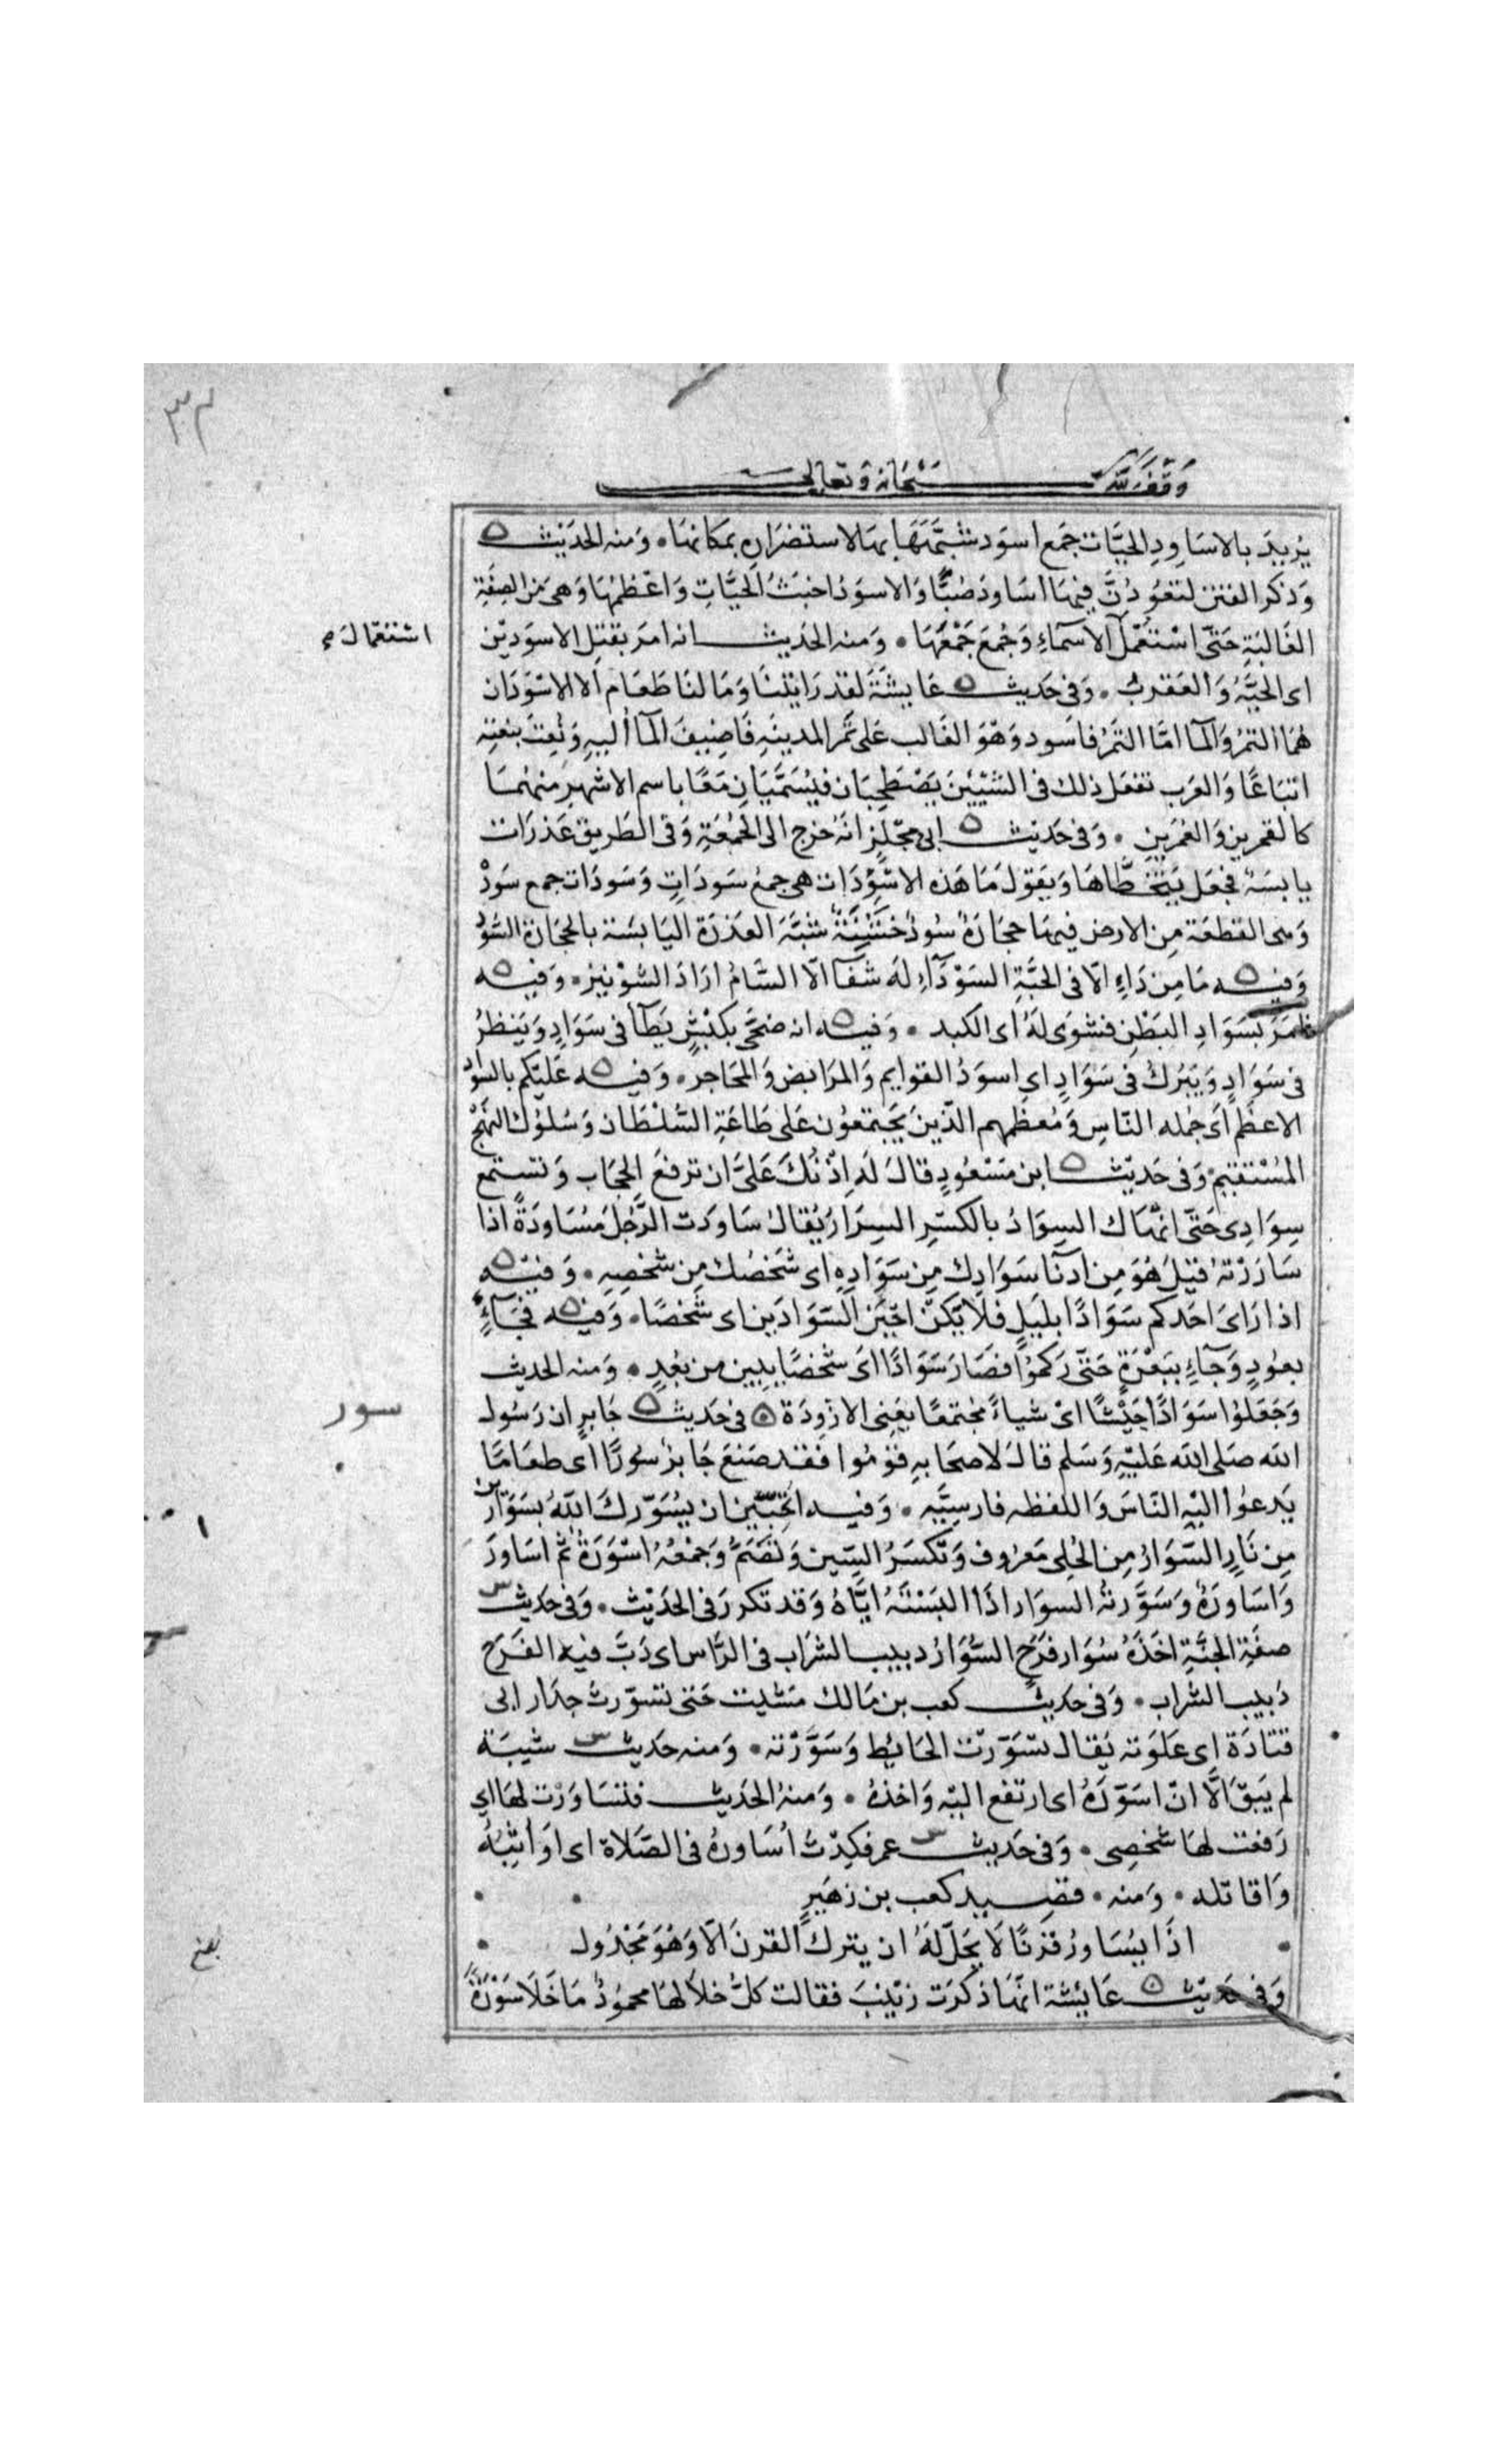 ٣٢
وَقفَ لله سُبْحَانه وَتعالى
يُريدُ بالاسَاوِدِ الحيَّات جَمع اسوَد شبَّهَهَا بهَا لاستضرَارِه بمكَانهَا ۰ وَمنه الحَديث
وَذكر الفتن لتعُودُنَّ فيهَا اسَاودَ صُبًّا وَالاسوَدُ اخبَثُ الحيَّاتِ وَاعْظمُهَا وَهى مِن الصِفَةِ
الغَالبَةِ حَتى اسْتُعْمل الاسمَآءِ وَجُمعَ جَمْعَهَا ۰ وَمنه الحَديث انه امرَ بقتلِ الاسوَديْن
استعمَالَ
اى الحيَّةُ وَالعَقربُ ۰ وَفى حَديث عَايشَةَ لقد رَايْتنَا وَمَا لنَا طعَام الا الاسْوَدَان
هُمَا التمرُ وَالمآ امَّا التَّمرُ فاسود وَهوَ الغَالب عَلى تَمر المدينَةِ فَاضِيفَ المآ اليهِ وَنُعِتَ بنعته
اتبَاعًا وَالعَرَب تفعَل ذلك فى الشيْئيْنَ يَصْطَحِبَان فيُسَمَّيَانِ مَعًا باسم الاشهرِ منهمَا
كالقمرين وَالعُمَرَينِ ۰ وَفى حَديث ابى مجْلزٍ انهُ خرَج الى الجُمُعَةِ وَفى الطَريق عَذرَات
يابسَةٌ فجَعَل يتخَطَّاهَا وَيَقولَ مَا هَذه الاسْوَدَات هى جمعُ سَودَاتٍ وَسَودَات جمع سَودْ
وَهى القطعَة مِن الارض فيهَا حِجَارَةٌ سُودٌ خشِنَةٌ شبَّهَ العذرَة اليَابسَة بالحجَارَة السُّوْد
وَفيه مَا مِن دَاءٍ الّا فى الحَبَّةِ السَوْدَآءِ لهَ شفَآ الّا السَّامُ ارَادَ الشُوْنيز ۰ وَفيه
فامَرَ بسَوَادِ البَطْنِ فشوى لهُ اى الكبد ۰ وَفيه انه ضحَّى بكبْشٍ يَطأ فى سَوَادٍ وَيَنظرُ
فى سَوَادٍ وَيَبْرك فى سَوَادٍ اى اسوَدُ القوايم وَالمرَابض وَالمحَاجر ۰ وَفيه عَليْكم بالسَّوَاد
الاعظم اى جُمله النّاسِ وَمُعظمهم الذينَ يَجتمعُون عَلى طَاعَةِ السُّلْطَان وَسُلوُك النهْج
المُسْتقيم وَفى حَديْث ابن مَسْعُودٍ قالَ لَه اِذْنُكَ عَلَىَّ ان ترفعَ الحجَاب وَتستمع
سِوَادِى حَتى انهَاك السِوَادُ بالكسْرِ السِرَارُ يُقالُ سَاوَدت الرَّجُل مُسَاوَدَةً اذا
سَارَرْتهُ قيْلَ هُوَ مِن ادنآ سَوَادِك مِن سَوَادِهِ اى شَخصُك مِن شَخصِهِ ۰ وَفيْه
اذا رَاىَ احَدكم سَوَادًا بليَلٍ فلَا يَكنْ اجْبَن السَّوَادَين اى شخْصًا ۰ وَفيه فجَآءٍ
بعُودٍ وَجَآءِ ببَعْرَةٍ حَتى رَكمُوا فصَارَ سَوَادًا اى شخصًا يبين من بُعْدٍ ۰ وَمنه الحديث
وَجَعَلوْا سَوَادًا حَيْسًا اىْ شياءً مجْتمعًا يعَنى الازودَة فى حَديث جَابر ان رَسُول
سور
الله صَلى الله عَليْهِ وَسَلم قالَ لاصحَابهِ قوْمُوا فقد صَنعَ جَابرُ سُورًا اى طعَامًا
يَدعوُا اليْه النّاسَ وَاللفظه فارسِيَّه ۰ وَفيه اتحُبّيْن ان يُسَوّركَ اللهُ بسَوَارَيْن
مِن نَارٍ السّوَارُ مِن الحُلى مَعرُوف وَتكسَرُ السِّين وَتُضَمُّ وَجمْعُهُ اسْوَرَة ثم اسَاورَ
وَاسَاورَة وَسَوَّرتهُ السوَار اذَا البسْتَهُ ايَّاهُ وَقد تكررَ فى الحَديْث ۰ وَفى حَديث
صفَةِ الجنَّةِ اخذهُ سُوَار فرَحٍ السُّوَارُ دبيب الشرَاب فى الرَّاس اى دَبَّ فيه الفرَح
دَبيب الشراب ۰ وَفى حديث كعب بن مَالك مَشيت حَتى تسوّرتُ جِدَار ابى
قتادَةَ اى عَلوَته يُقال تسَوّرتُ الحَايط وَسَوَّرْته ۰ وَمنه حَديث شيبَة
لم يَبْقَ الَّا انّ اسَوّرَهُ اى ارتفع اليْه وَاخذهُ ۰ وَمنهُ الحَديث فتسَاوَرْت لهَا اى
رَفعْت لهَا شخصى ۰ وَفى حَديث عمر فكِدْتُ اُسَاورُهُ فى الصَّلاة اى اوَاثِبُهُ
وَاقاتله ۰ وَمنه ۰ قصيد كعب بن زهَيرٍ
اذَا يُسَاورُ قِرْنًا لَا يَحلّ لهُ ان يترك القرنَ الّا وَهُوَ مَجْدُول
وَفى حَديْث عَائشَة انهَا ذكرَت زيْنبَ فقالت كلُّ خلاَلهَا محموُدٌ مَا خَلَا سَوْرَةً